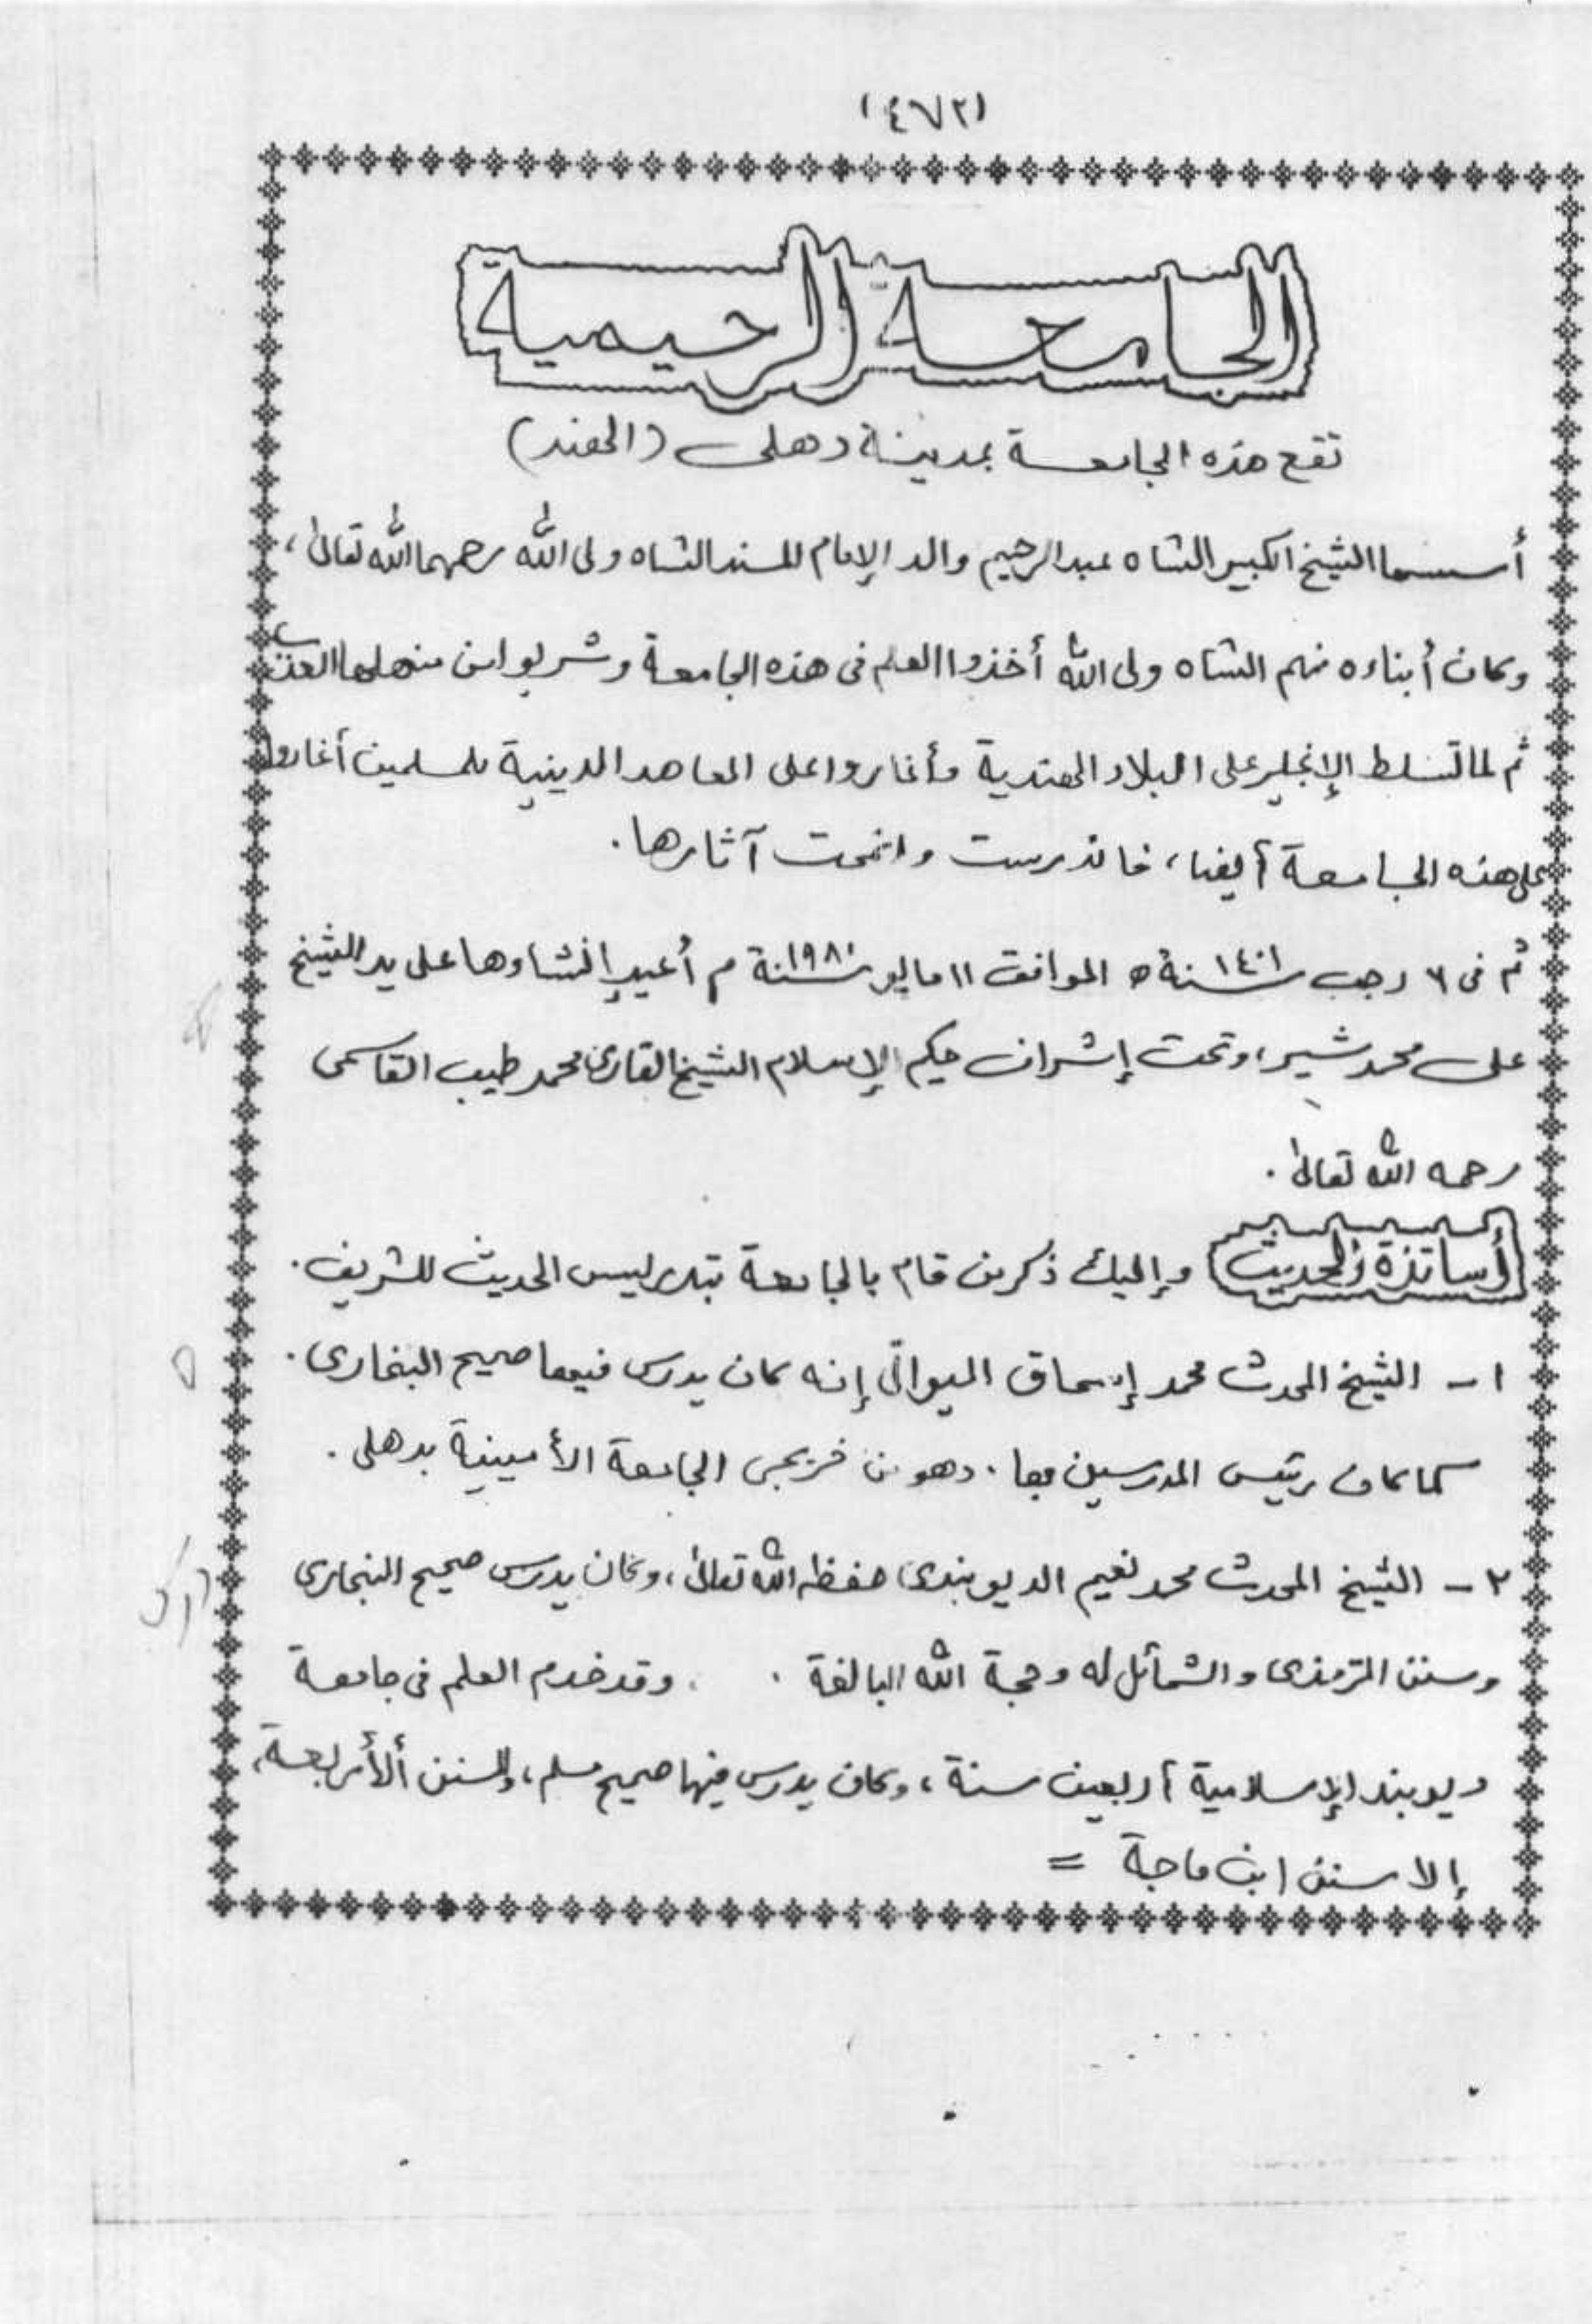 (٤٧٢)
الجامعة الرحيمية
تقع هذه الجامعة بمدينة دهلى (الهند)
أسسها الشيخ الكبير الشاه عبدالرحيم والد الإمام المسند الشاه ولى الله رحمهما الله تعالىٰ،
وكان أبناءه منهم الشاه ولى الله أخذوا العلم فى هذه الجامعة وشربوا من منهلها العذب
ثم لما تسلط الإنجليز على البلاد الهندية وأغاروا على المعاهد الدينية للمسلمين أغاروا
على هذه الجامعة أيضا، فاندرست وانمحت آثارها.
ثم فى ٦ رجب سنة ١٤٠١ ه الموافق ١١ مايو سنة ١٩٨٠ م أُعيد إنشاوها على يد الشيخ
على محمد شير، وتحت إشراف حكيم الإسلام الشيخ القارئ محمد طيب القاسمى
رحمه الله تعالىٰ.
أساتذة الحديث وإليك ذكر من قام بالجامعة بتدريس الحديث الشريف.
١ - الشيخ المحدث محمد إسحاق الميواتى إنه كان يدرس فيها صحيح البخارى.
كما كان رئيس المدرسين بها. وهو من خريجى الجامعة الأمينية بدهلى.
٢ - الشيخ المحدث محمد نعيم الديوبندى حفظه الله تعالىٰ، وكان يدرس صحيح البخارى
وسنن الترمذى والشمائل له وحجة الله البالغة. وقد خدم العلم فى جامعة
ديوبند الإسلامية أربعين سنة، وكان يدرس فيها صحيح مسلم، والسنن الأربعة،
إلا سنن ابن ماجة =